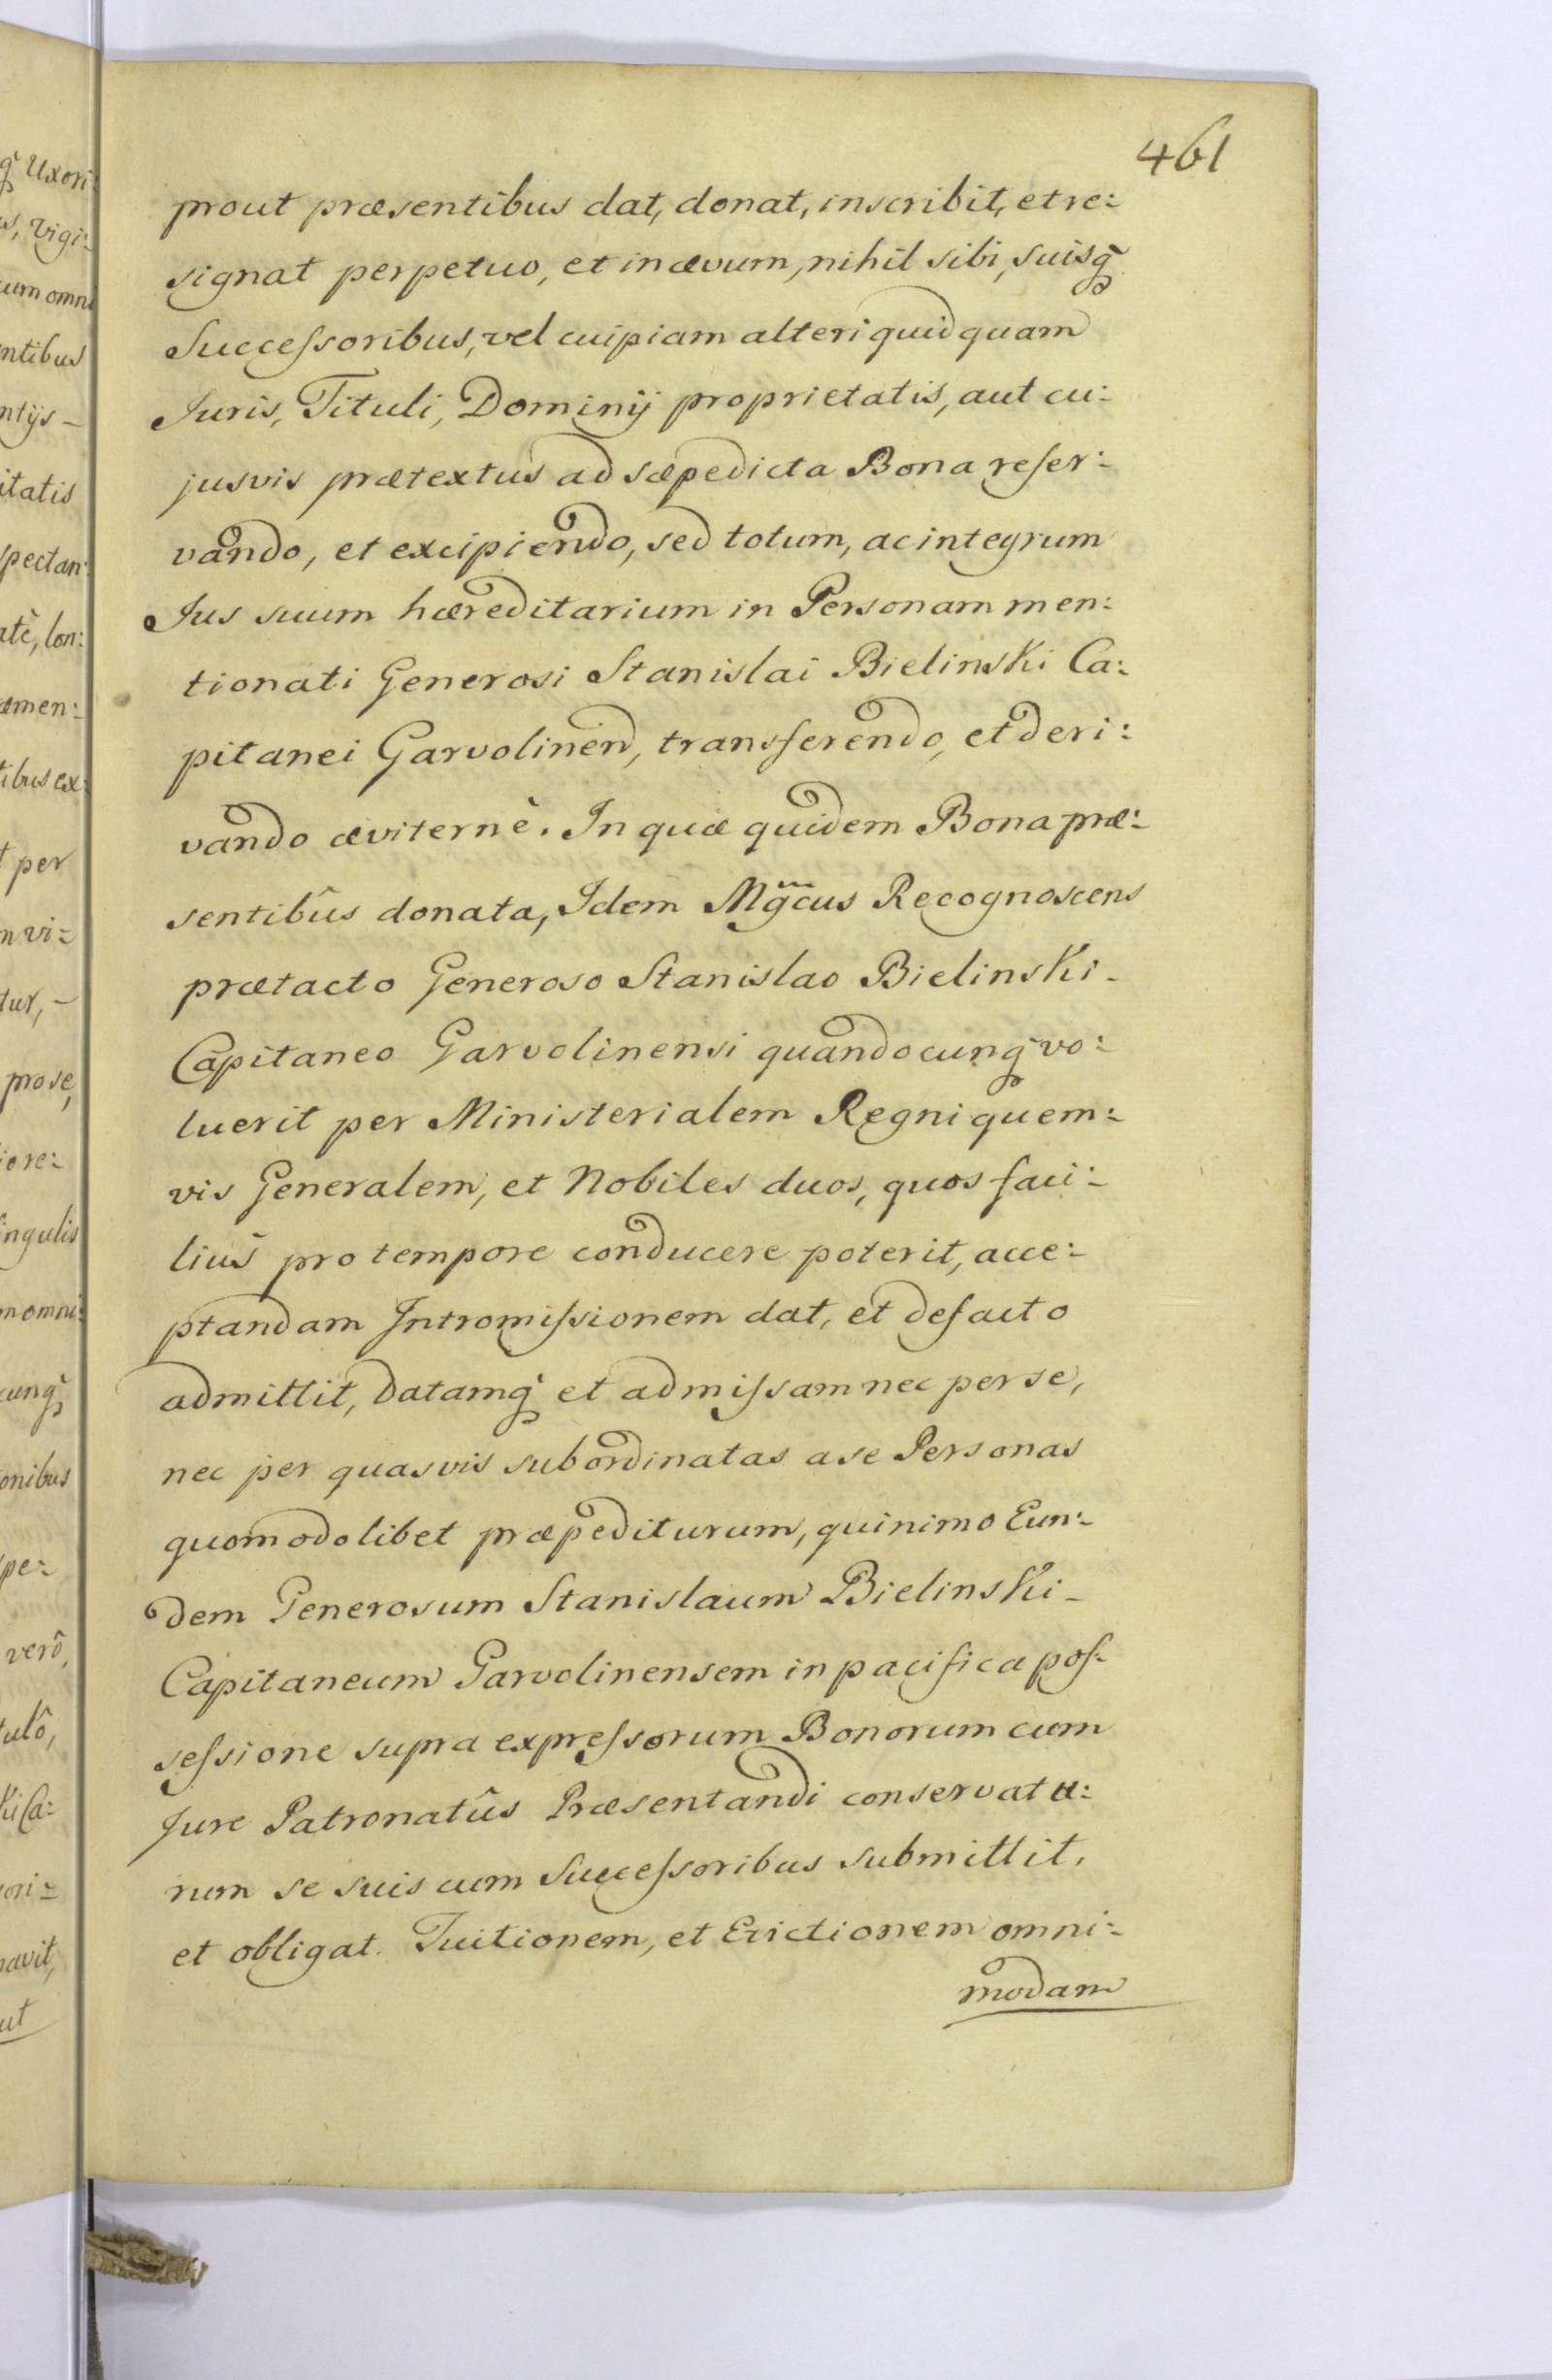 461
prout præsentibus dat, donat, inscribit, et re:
signat perpetuo, et in ævum, nihil sibi, suisq̃
Succeſsoribus, vel cuipiam alteri quidquam
Juris, Tituli, Dominij proprietatis, aut cu:
jusvis prætextus ad sæpedicta Bona reser:
vando, et excipiendo, sed totum, ac integrum
Jus suum hæreditarium in Personam men:
tionati Generosi Stanislai Bielinski Ca:
pitanei Garvolinen, transferendo, et deri:
vando æviternè. In quæ quidem Bona præ:
sentibûs donata, Idem Mg̃cus Recognoscens
prætacto Generoso Stanislao Bielinski -
Capitaneo Garvolinensi quandocunq̃ vo:
luerit per Ministerialem Regni quem:
vis Generalem, et Nobiles duos, quos faci:
liùs pro tempore conducere poterit, acce:
ptandam Intromiſsionem dat, et defacto
admittit, datamq̃ et admiſsam nec per se,
nec per quasvis subordinatas a se Personas
quomodolibet præpediturum, quinimo Eun:
dem Generosum Stanislaum Bielinski -
Capitaneum Garvolinensem in pacifica poſ:
seſsione supra expreſsorum Bonorum cum
Jure Patronatûs Præsentandi conservatu:
rum se suis cum Succeſsoribus submittit,
et obligat. Tuitionem, et Evictionem omni:
modam
q̃ Uxori:
us, Vigi:
cum omni
ntibus
ntijs -
itatis
spectan:
atè, lon:
amen:
tibus ex:
t per
n vi:
tur, -
pro se,
iore:
singulis
n omni:
cunq̃
onibus
spe:
verô,
tulô,
ki Ca:
ori:
navit,
ut